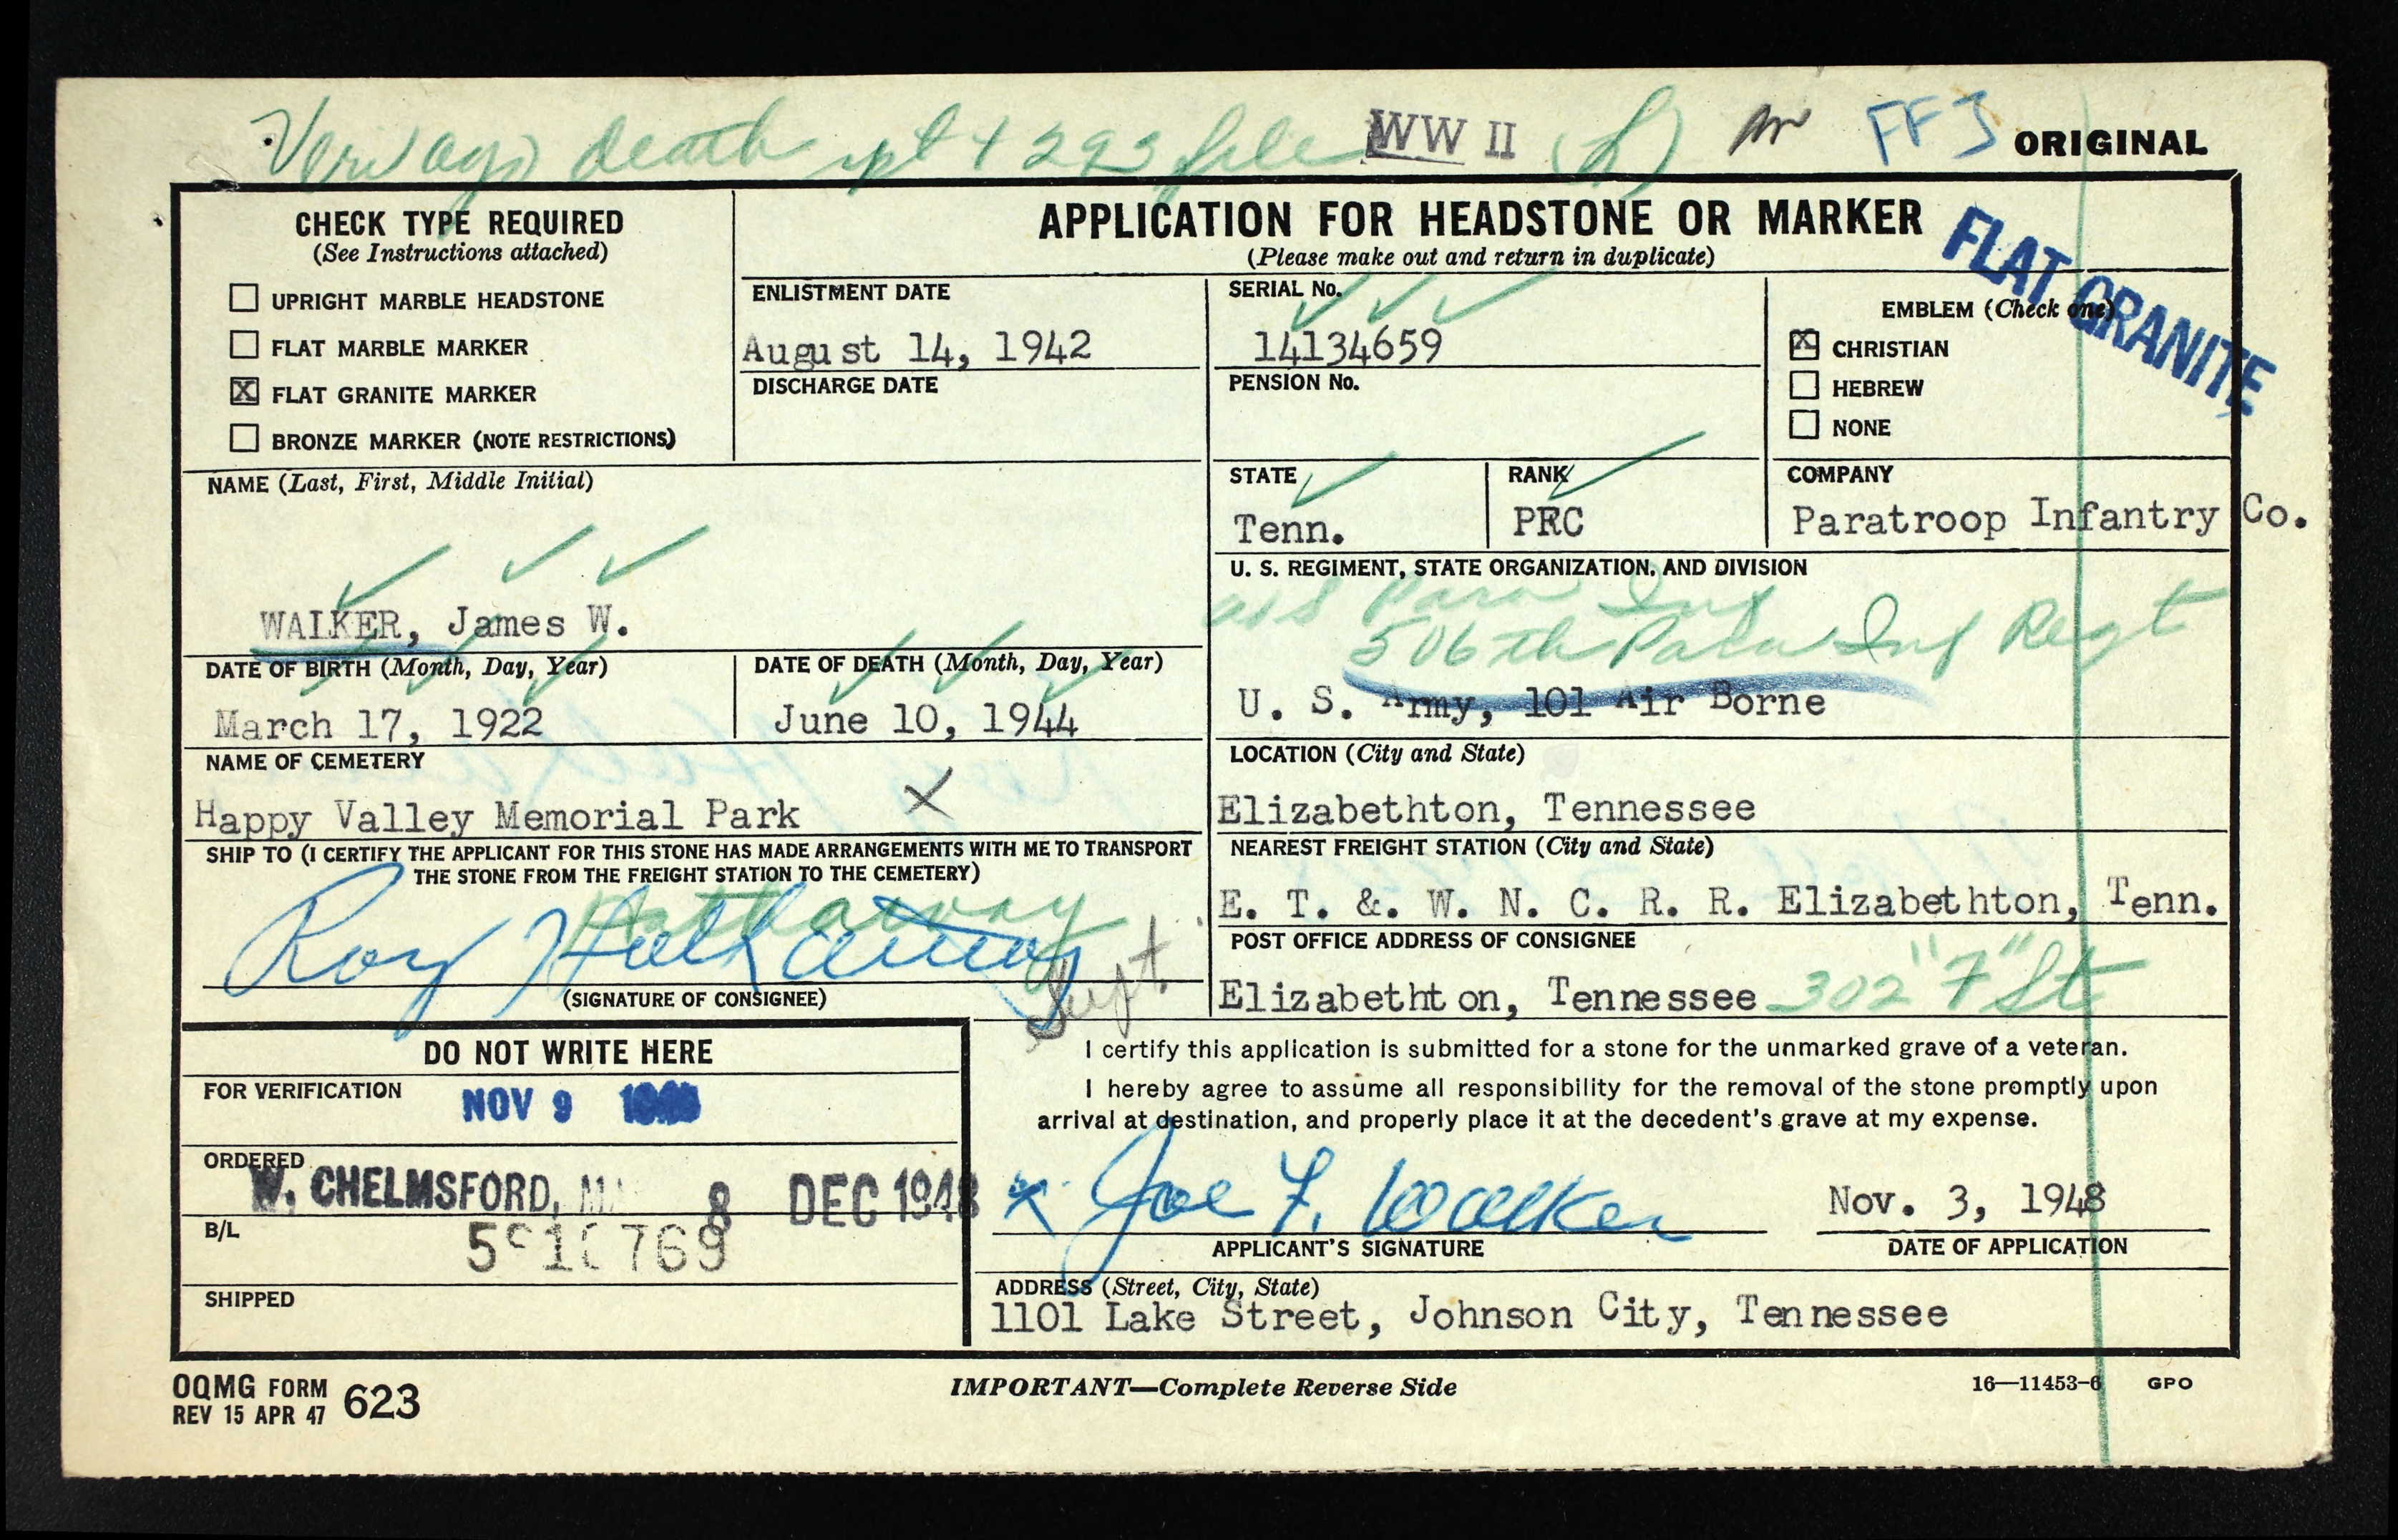 death rpt + 293 file WW II FF3 ORIGINAL
CHECK TYPE REQUIRED
(See Instructions attached)
☐ UPRIGHT MARBLE HEADSTONE
☐ FLAT MARBLE MARKER
☒ FLAT GRANITE MARKER
☐ BRONZE MARKER (NOTE RESTRICTIONS)
APPLICATION FOR HEADSTONE OR MARKER
(Please make out and return in duplicate)
FLAT GRANITE
ENLISTMENT DATE
August 14, 1942
DISCHARGE DATE
SERIAL No.
14134659
PENSION No.
EMBLEM (Check one)
☒ CHRISTIAN
☐ HEBREW
☐ NONE
NAME (Last, First, Middle Initial)
WALKER, James W.
STATE
Tenn.
RANK
PFC
COMPANY
Paratroop Infantry Co.
U. S. REGIMENT, STATE ORGANIZATION, AND DIVISION
Para Inf
506th Para Inf Regt
U. S. Army, 101 Air Borne
DATE OF BIRTH (Month, Day, Year)
March 17, 1922
DATE OF DEATH (Month, Day, Year)
June 10, 1944
NAME OF CEMETERY
Happy Valley Memorial Park X
LOCATION (City and State)
Elizabethton, Tennessee
SHIP TO (I CERTIFY THE APPLICANT FOR THIS STONE HAS MADE ARRANGEMENTS WITH ME TO TRANSPORT
THE STONE FROM THE FREIGHT STATION TO THE CEMETERY)
Hathaway
Roy Hathaway Supt.
(SIGNATURE OF CONSIGNEE)
NEAREST FREIGHT STATION (City and State)
E. T. &. W. N. C. R. R. Elizabethton, Tenn.
POST OFFICE ADDRESS OF CONSIGNEE
Elizabethton, Tennessee 302 "F" St
DO NOT WRITE HERE
FOR VERIFICATION
NOV 9
ORDERED
W. CHELMSFORD, 8 DEC 1948
B/L
SHIPPED
I certify this application is submitted for a stone for the unmarked grave of a veteran.
I hereby agree to assume all responsibility for the removal of the stone promptly upon
arrival at destination, and properly place it at the decedent's grave at my expense.
x Joe F. Walker
APPLICANT'S SIGNATURE
Nov. 3, 1948
DATE OF APPLICATION
ADDRESS (Street, City, State)
1101 Lake Street, Johnson City, Tennessee
OQMG FORM 623
REV 15 APR 47
IMPORTANT—Complete Reverse Side
16—11453-6 GPO